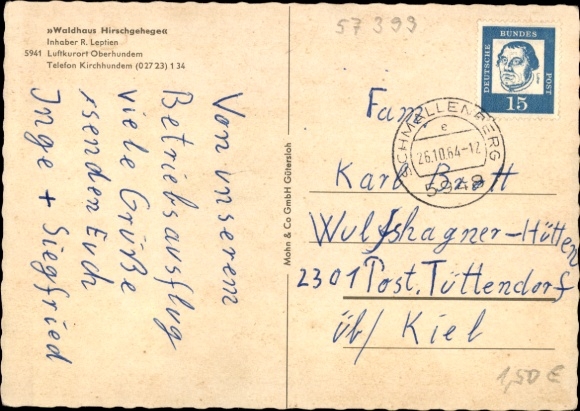 »Waldhaus Hirschgehege«
Inhaber R. Leptien
5941 Luftkurort Oberhundem
Telefon Kirchhundem (02723) 134
Von unserem
Betriebsausflug
viele Grüße
senden Euch
Inge + Siegfried
Mohn & Co GmbH Gütersloh
57 399
DEUTSCHE BUNDES POST
15
SCHMALLENBERG
e
26.10.64-12
5948
Fam.
Karl Brott
Wulfshagner-Hütten
2301 Post. Tüttendorf
üb/ Kiel
1,50 €